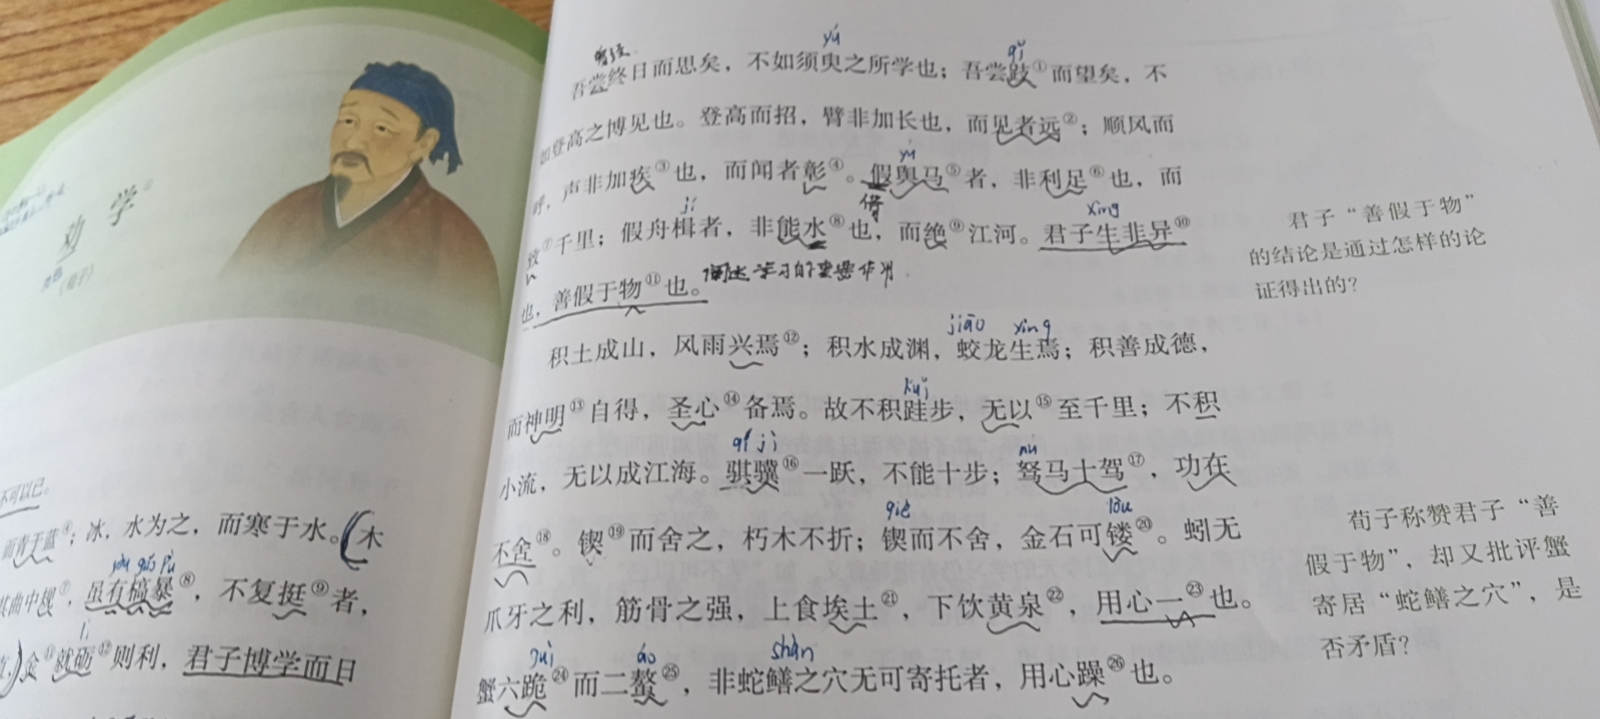 劝学
不可以已。
而青于蓝④；冰，水为之，而寒于水。（木
其曲中规⑦，虽有槁暴⑧，不复挺⑨者，
金⑪就砺⑫则利，君子博学而日
lì
曾经
yú
qǐ
吾尝终日而思矣，不如须臾之所学也；吾尝跂①而望矣，不
如登高之博见也。登高而招，臂非加长也，而见者远②；顺风而
yú
呼，声非加疾③也，而闻者彰④。假舆马⑤者，非利足⑥也，而
jí
借
xìng
致⑦千里；假舟楫者，非能水⑧也，而绝⑨江河。君子生非异⑩
也，善假于物⑪也。阐述学习的重要作用
jiāo
积土成山，风雨兴焉⑫；积水成渊，蛟龙生焉；积善成德，
kuǐ
而神明⑬自得，圣心⑭备焉。故不积跬步，无以⑮至千里；不积
qí jì
nú
小流，无以成江海。骐骥⑯一跃，不能十步；驽马十驾⑰，功在
qiè
lòu
不舍⑱。锲⑲而舍之，朽木不折；锲而不舍，金石可镂⑳。蚓无
爪牙之利，筋骨之强，上食埃土㉑，下饮黄泉㉒，用心一㉓也。
guì
áo
shàn
蟹六跪㉔而二螯㉕，非蛇鳝之穴无可寄托者，用心躁㉖也。
君子“善假于物”
的结论是通过怎样的论
证得出的？
荀子称赞君子“善
假于物”，却又批评蟹
寄居“蛇鳝之穴”，是
否矛盾？